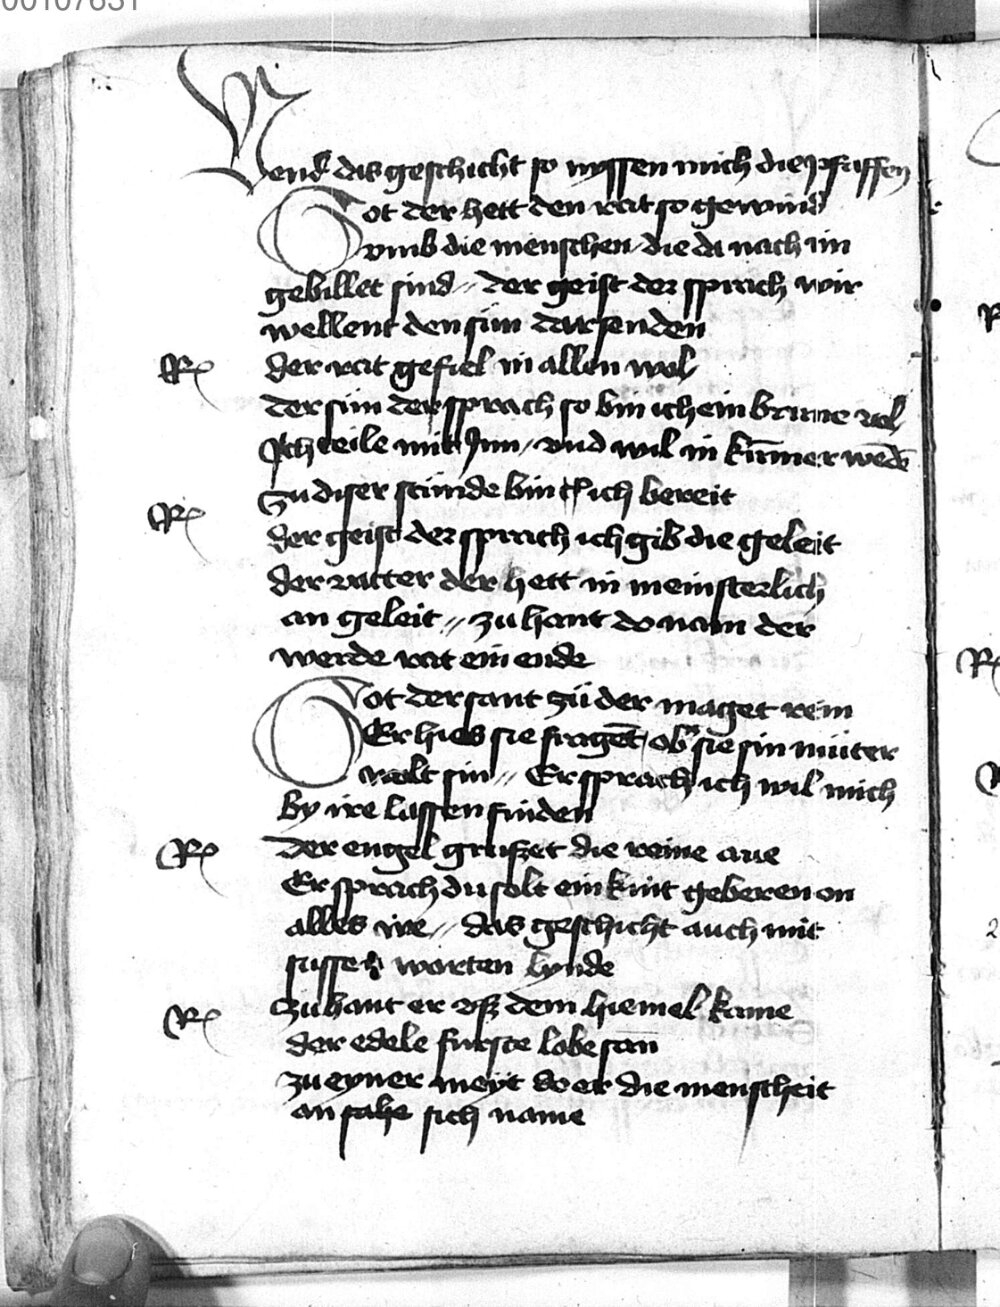 00107631
Wend das geschicht so myssen mich die pfaffen
Got der hett den rat so gewind
vmb die menschen die da nach im
gebillet sind // der geist der sprach wir
wellent den sun dar senden
Rx der rat gefiel in allen wol
der sun der sprach so bin ich ein brune vol
Ich teile mit Jnn / vnd wil in kumer wedē
zu diser stunde bin ich bereit
Rx der geist der sprach ich gib die geleit
der vatter der hett in meinsterlich
an geleit // zu hant do nam der
werde rat ein ende
Got der sant zü der maget rein
Er hies sie fragēt ob sie sin müter
wolt sin // Er sprach ich wil mich
by ire lassen finden
Rx der engel grüszet die reine aue
Er sprach du solt ein kint geberen on
alles we // das geschicht auch mit
susser worten lynde
Rx zu hant er vsz dem hiemel kame
der edele furste lobesan
zu eyner meyt do er die menscheit
an sahe sich name